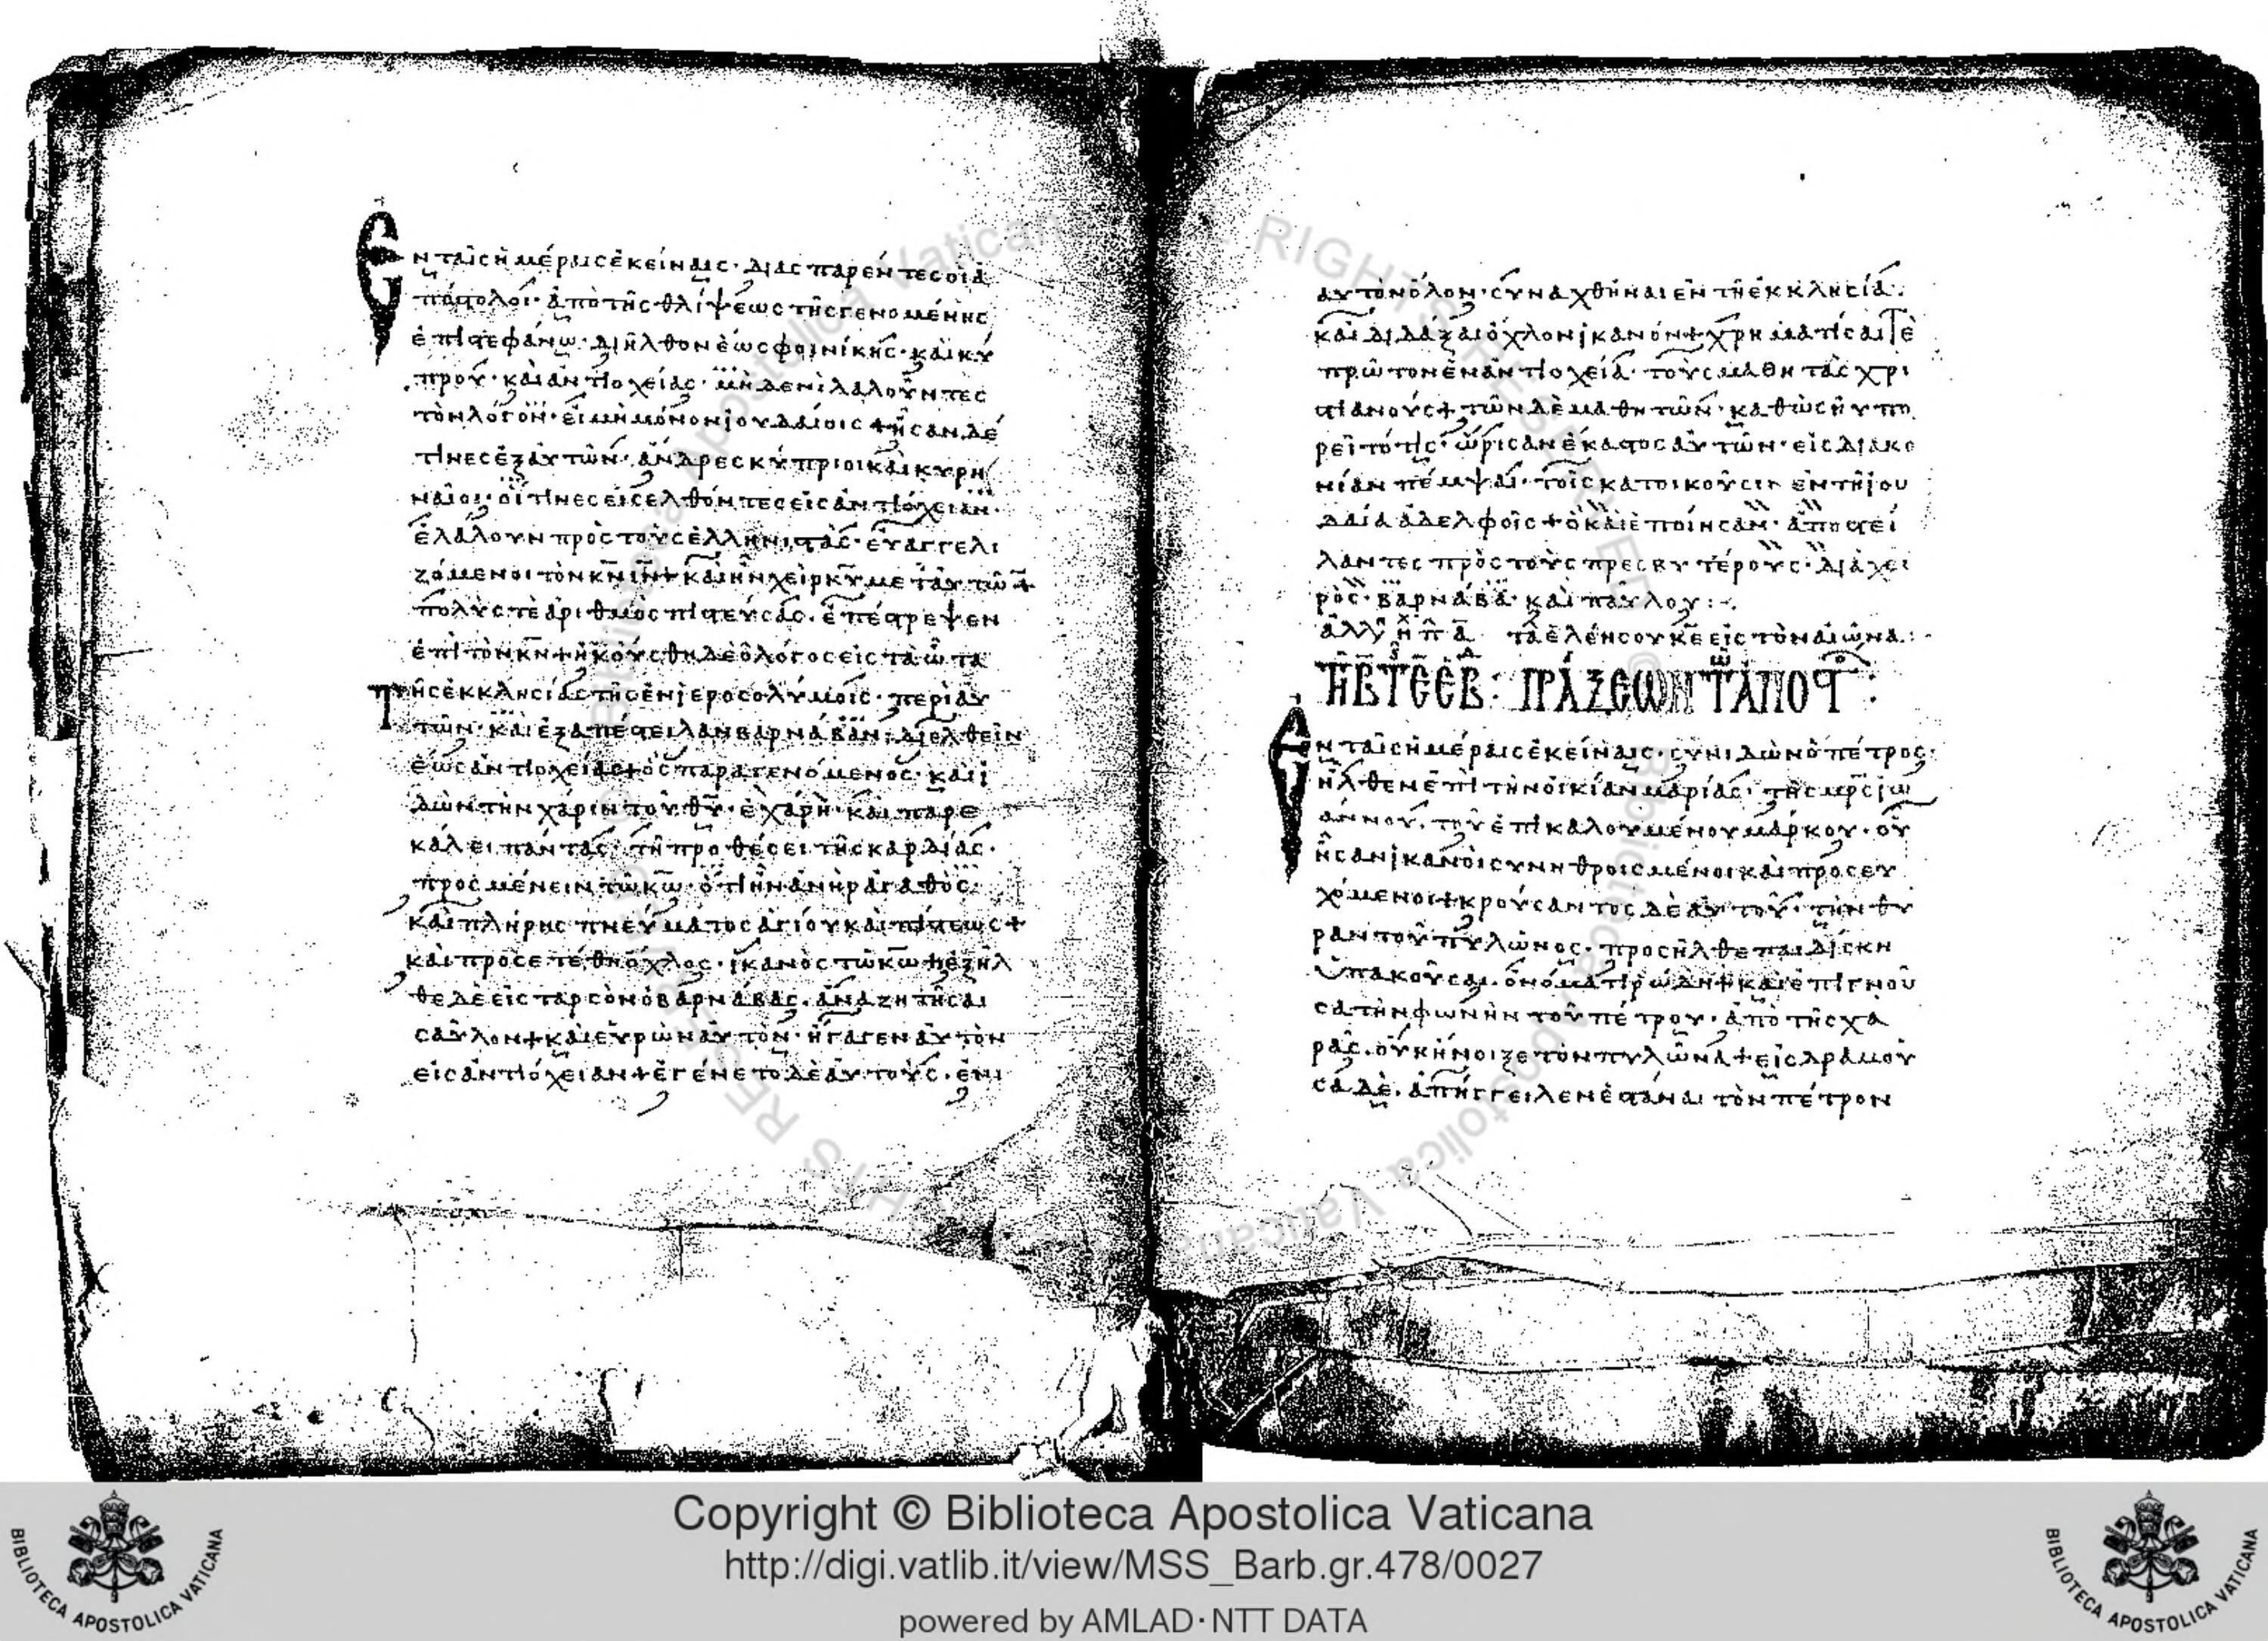 Ἐν ταῖς ἡμέραις ἐκείναις· διασπαρέντες οἱ ἀ
πόστολοι· ἀπὸ τῆς θλίψεως τῆς γενομένης
ἐπὶ στεφάνω· διῆλθον ἕως φοινίκης· καὶ κύ
πρου· καὶ ἀντιοχείας· μηδενὶ λαλοῦντες
τὸν λόγον· εἰ μὴ μόνον ἰουδαίοις + ἦσαν δέ
τινες ἐξ αὐτῶν· ἄνδρες κύπριοι καὶ κυρη
ναῖοι· οἵτινες εἰσελθόντες εἰς ἀντιόχειαν·
ἐλάλουν πρὸς τοὺς ἑλληνιστάς· εὐαγγελι
ζόμενοι τὸν κν ιν + καὶ ἦν χεὶρ κυ μετ αὐτῶν +
πολύς τε ἀριθμὸς πιστεύσας· ἐπέστρεψεν
ἐπὶ τὸν κν + ἠκούσθη δὲ ὁ λόγος εἰς τὰ ὦτα
τῆς ἐκκλησίας τῆς ἐν ἱεροσολύμοις· περὶ αὐ
τῶν· καὶ ἐξαπέστειλαν βαρνάβαν· διελθεῖν
ἕως ἀντιοχείας + ὃς παραγενόμενος· καὶ ἰ
δὼν τὴν χάριν τοῦ θυ· ἐχάρη· καὶ παρε
κάλει πάντας· τῆ προθέσει τῆς καρδίας·
προσμένειν τῶ κω· ὅτι ἦν ἀνὴρ ἀγαθὸς·
καὶ πλήρης πνεύματος ἁγίου καὶ πίστεως +
καὶ προσετέθη ὄχλος· ἱκανὸς τῶ κω + ἐξῆλ
θε δὲ εἰς ταρσὸν ὁ βαρνάβας· ἀναζητῆσαι
σαῦλον + καὶ εὑρὼν αὐτὸν· ἤγαγεν αὐτὸν
εἰς ἀντιόχειαν + ἐγένετο δὲ αὐτοὺς· ἐνι
αυτὸν ὅλον· συναχθῆναι ἐν τῆ ἐκκλησία·
καὶ διδάξαι ὄχλον ἱκανόν + χρηματίσαι τὲ
πρῶτον ἐν ἀντιοχεία· τοὺς μαθητὰς χρι
στιανούς + τῶν δὲ μαθητῶν· καθὼς ηὐπο
ρεῖτό τις· ὥρισαν ἕκαστος αὐτῶν· εἰς διακο
νίαν πέμψαι· τοῖς κατοικοῦσιν ἐν τῆ ἰου
δαία ἀδελφοῖς + ὃ καὶ ἐποίησαν· ἀποστεί
λαντες πρὸς τοὺς πρεσβυτέρους· διὰ χει
ρὸς· βαρνάβα· καὶ παύλου :-
ἀλλη ἠχ πλ α τὰ ἐλέη σου κε εἰς τὸν αἰῶνα :
Τῆ Β Τῆς Ε ΕΒΔ : ΠΡΑΞΕΩΝ ΤΩΝ ΑΠΟΣΤ :
Ἐν ταῖς ἡμέραις ἐκείναις· συνιδὼν ὁ πέτρος·
ἦλθεν ἐπὶ τὴν οἰκίαν μαρίας· τῆς μρς ἰω
άννου· τοῦ ἐπικαλουμένου μάρκου· οὗ
ἦσαν ἱκανοὶ συνηθροισμένοι καὶ προσευ
χόμενοι + κρούσαντος δὲ αὐτοῦ· τὴν θύ
ραν τοῦ πυλῶνος· προσῆλθε παιδίσκη
ὑπακοῦσαι· ὀνόματι ῥώδη + καὶ ἐπιγνοῦ
σα τὴν φωνὴν τοῦ πέτρου· ἀπὸ τῆς χα
ρᾶς· οὐκ ἤνοιξε τὸν πυλῶνα + εἰσδραμοῦ
σα δὲ· ἀπήγγειλεν ἑστάναι τὸν πέτρον
Copyright © Biblioteca Apostolica Vaticana
http://digi.vatlib.it/view/MSS_Barb.gr.478/0027
powered by AMLAD·NTT DATA
BIBLIOTECA APOSTOLICA VATICANA
BIBLIOTECA APOSTOLICA VATICANA